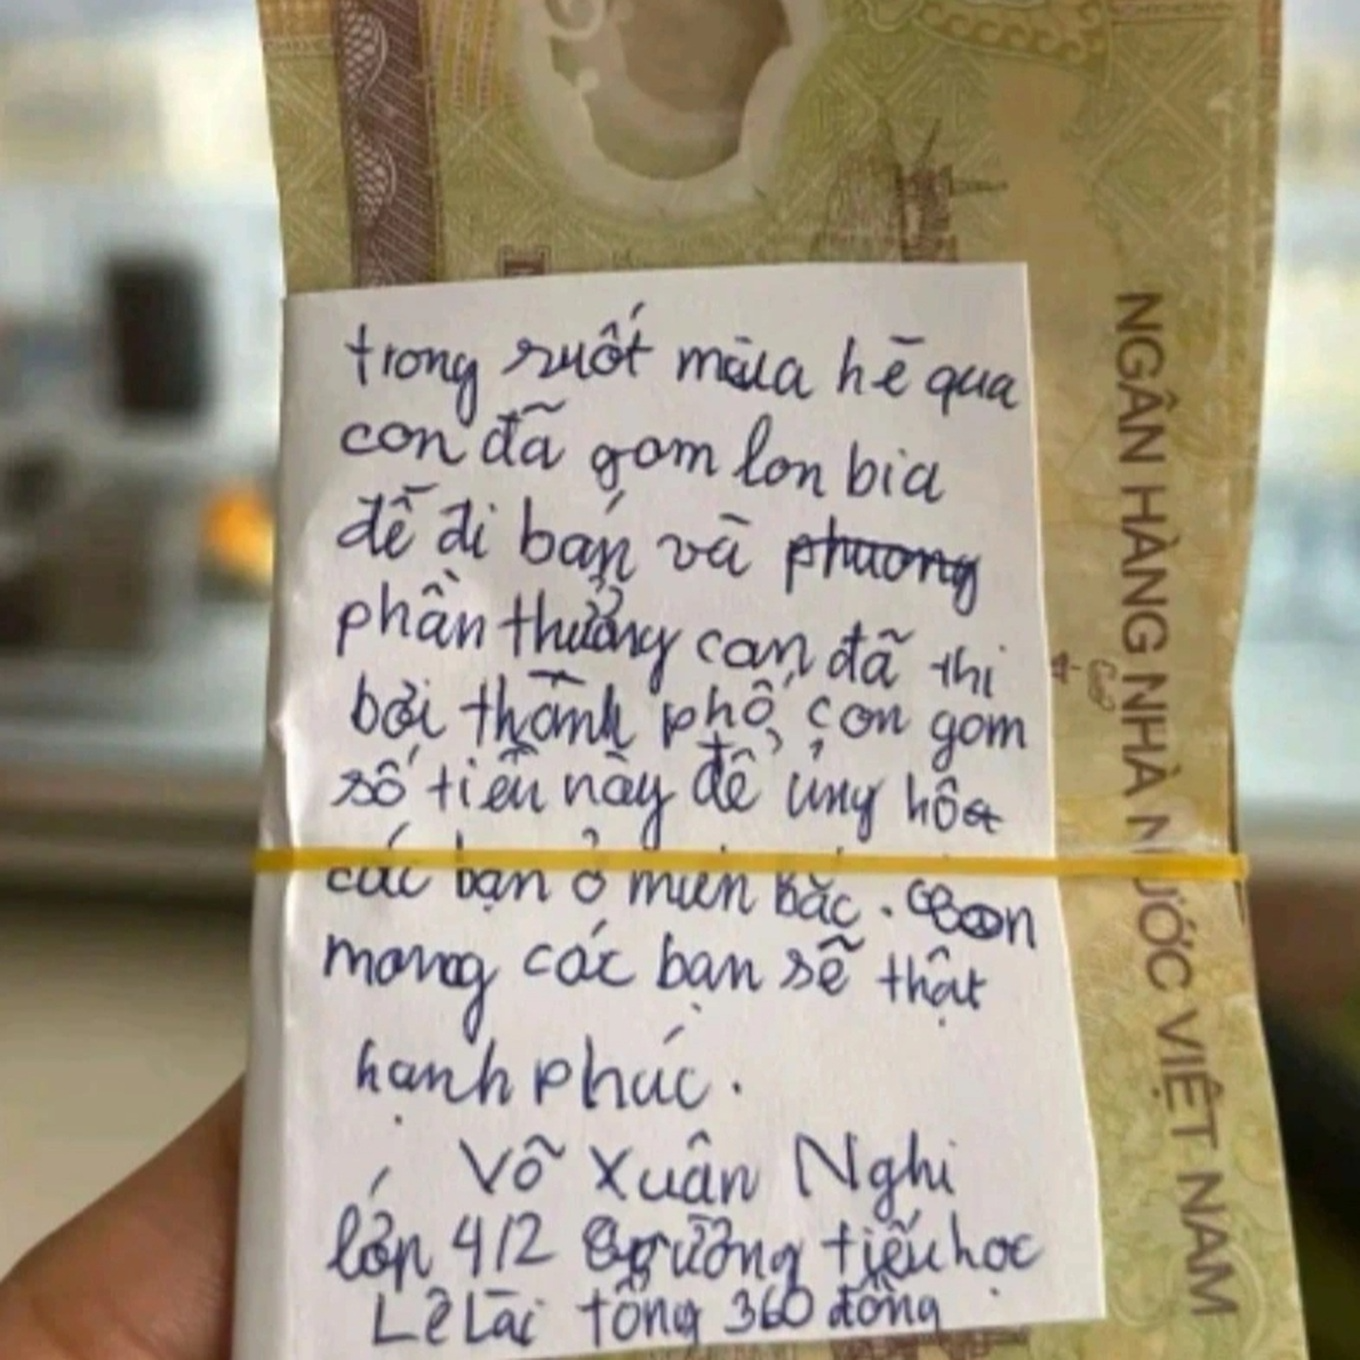 trong suốt mùa hè qua
con đã gom lon bia
để đi bán và phương
phần thưởng con đã thi
bơi thành phố, con gom
số tiền này để ủng hộ
các bạn ở miền Bắc. Con
mong các bạn sẽ thật
hạnh phúc.
Võ Xuân Nghi
lớp 4/2 trường tiểu học
Lê Lai tổng 360 đồng
NGÂN HÀNG NHÀ NƯỚC VIỆT NAM